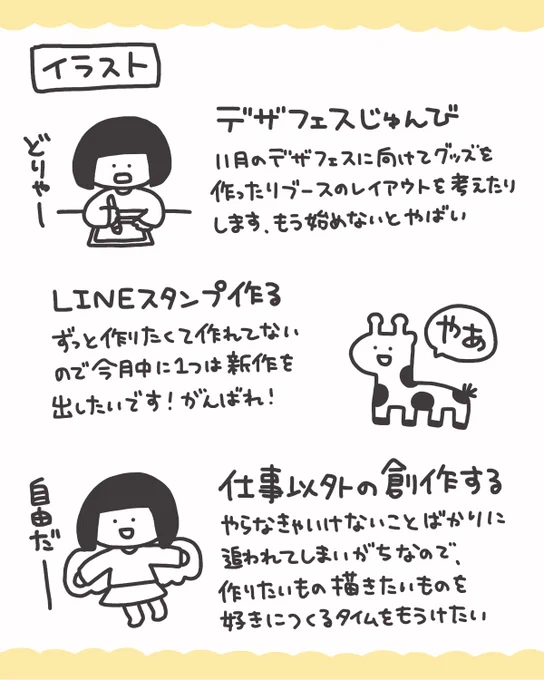 イラスト
どりゃー
デザフェスじゅんび
11月のデザフェスに向けてグッズを
作ったりブースのレイアウトを考えたり
します、もう始めないとやばい
LINEスタンプ作る
ずっと作りたくて作れてない
ので今月中に1つは新作を
出したいです！がんばれ！
やあ
自由だー
仕事以外の創作する
やらなきゃいけないことばかりに
追われてしまいがちなので、
作りたいもの描きたいものを
好きにつくるタイムをもうけたい